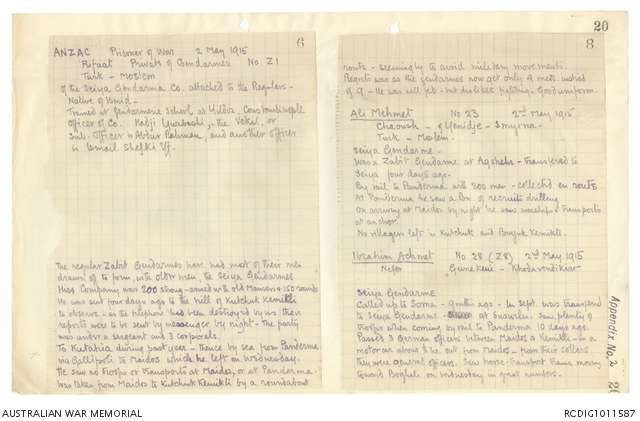 20
6
ANZAC Prisoner of War 2 May 1915
Rifaat Private of Gendarmes No Z1
Turk - Moslem
of the Seiya Gendarme Co. attached to the Regulars -
Native of
Trained at Gendarmerie School at Yildiz, Constantinople
Officer of Co. Hadji Yuzbashi, - the Vekil, or
Sub. Officer is Abdur Rahman, and another officer
is Ismail Shefki Eff.
The regular Zabit Gendarmes have had most of their men
drawn off to form, with older men, the Seiya Gendarmes
His Company was 200 strong - armed with old Mausers & 150 rounds
He was sent four days ago to the hill of Kutchuk Kemikli
to observe - as the telephone had been destroyed by us their
reports were to be sent by messenger by night - the party
was under a sergeant and 3 corporals.
To Kutahia during past year - thence by sea from Panderma
via Gallipoli to Maidos which he left on Wednesday.
He saw no troops or transports at Maidos, or at Panderma.
Was taken from Maidos to Kutchuk Kemikli by a roundabout
8
route - seemingly to avoid military movements.
Regrets was as the gendarmes now get only 2 meds instead
of 9 - He was well fed - but disliked fighting. Good uniform.
Ali Mehmet No 23 2nd May 1915
Chaoush - of Yenidje - Smyrna -
Turk - Moslem.
Seiya Gendarme -
Was a Zabit Gendarme at Aqshehr - transferred to
Seiya four days ago -
By rail to Panderma with 200 men - collected en route
At Panderma he saw a Bn. of recruits drilling
On arriving at Maidos by night he saw warships & transports
at anchor.
No villagers left in Kutchuk and Boyuk Kemikli.
Ibrahim Achmet No 28 (Z8) 2nd May 1915
Nefer - Khodavendikiar
Seiya Gendarme
Called up to Soma - 9 months ago - In Sept. was transferred
to Seiya Gendarme at - Saw plenty of
troops when coming by rail to Panderma 10 days ago.
Passed 3 German officers between Maidos & Kemikli - in a
motor car about 2 hr. out from Maidos - from their collars
they were general officers. Saw horse-transport trains moving
toward Boghali on Wednesday in great numbers.
Appendix No. 2
AUSTRALIAN WAR MEMORIAL
RCDIG1011587